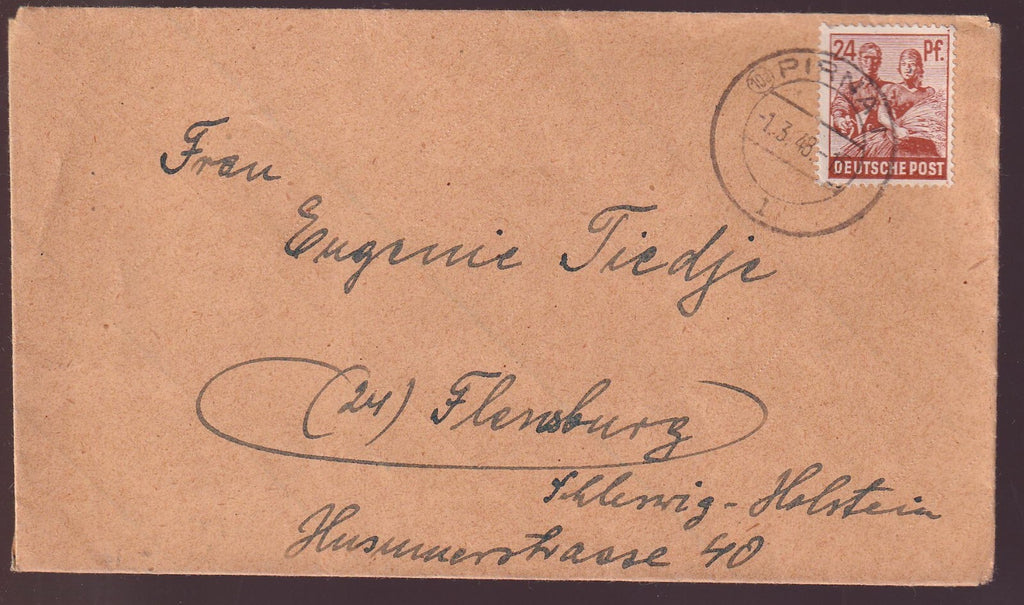 24 Pf.
DEUTSCHE POST
PIRNA
-1.3.48.-
Frau
Eugenie Tiedje
(24) Flensburg
Schleswig-Holstein
Husumerstraase 40